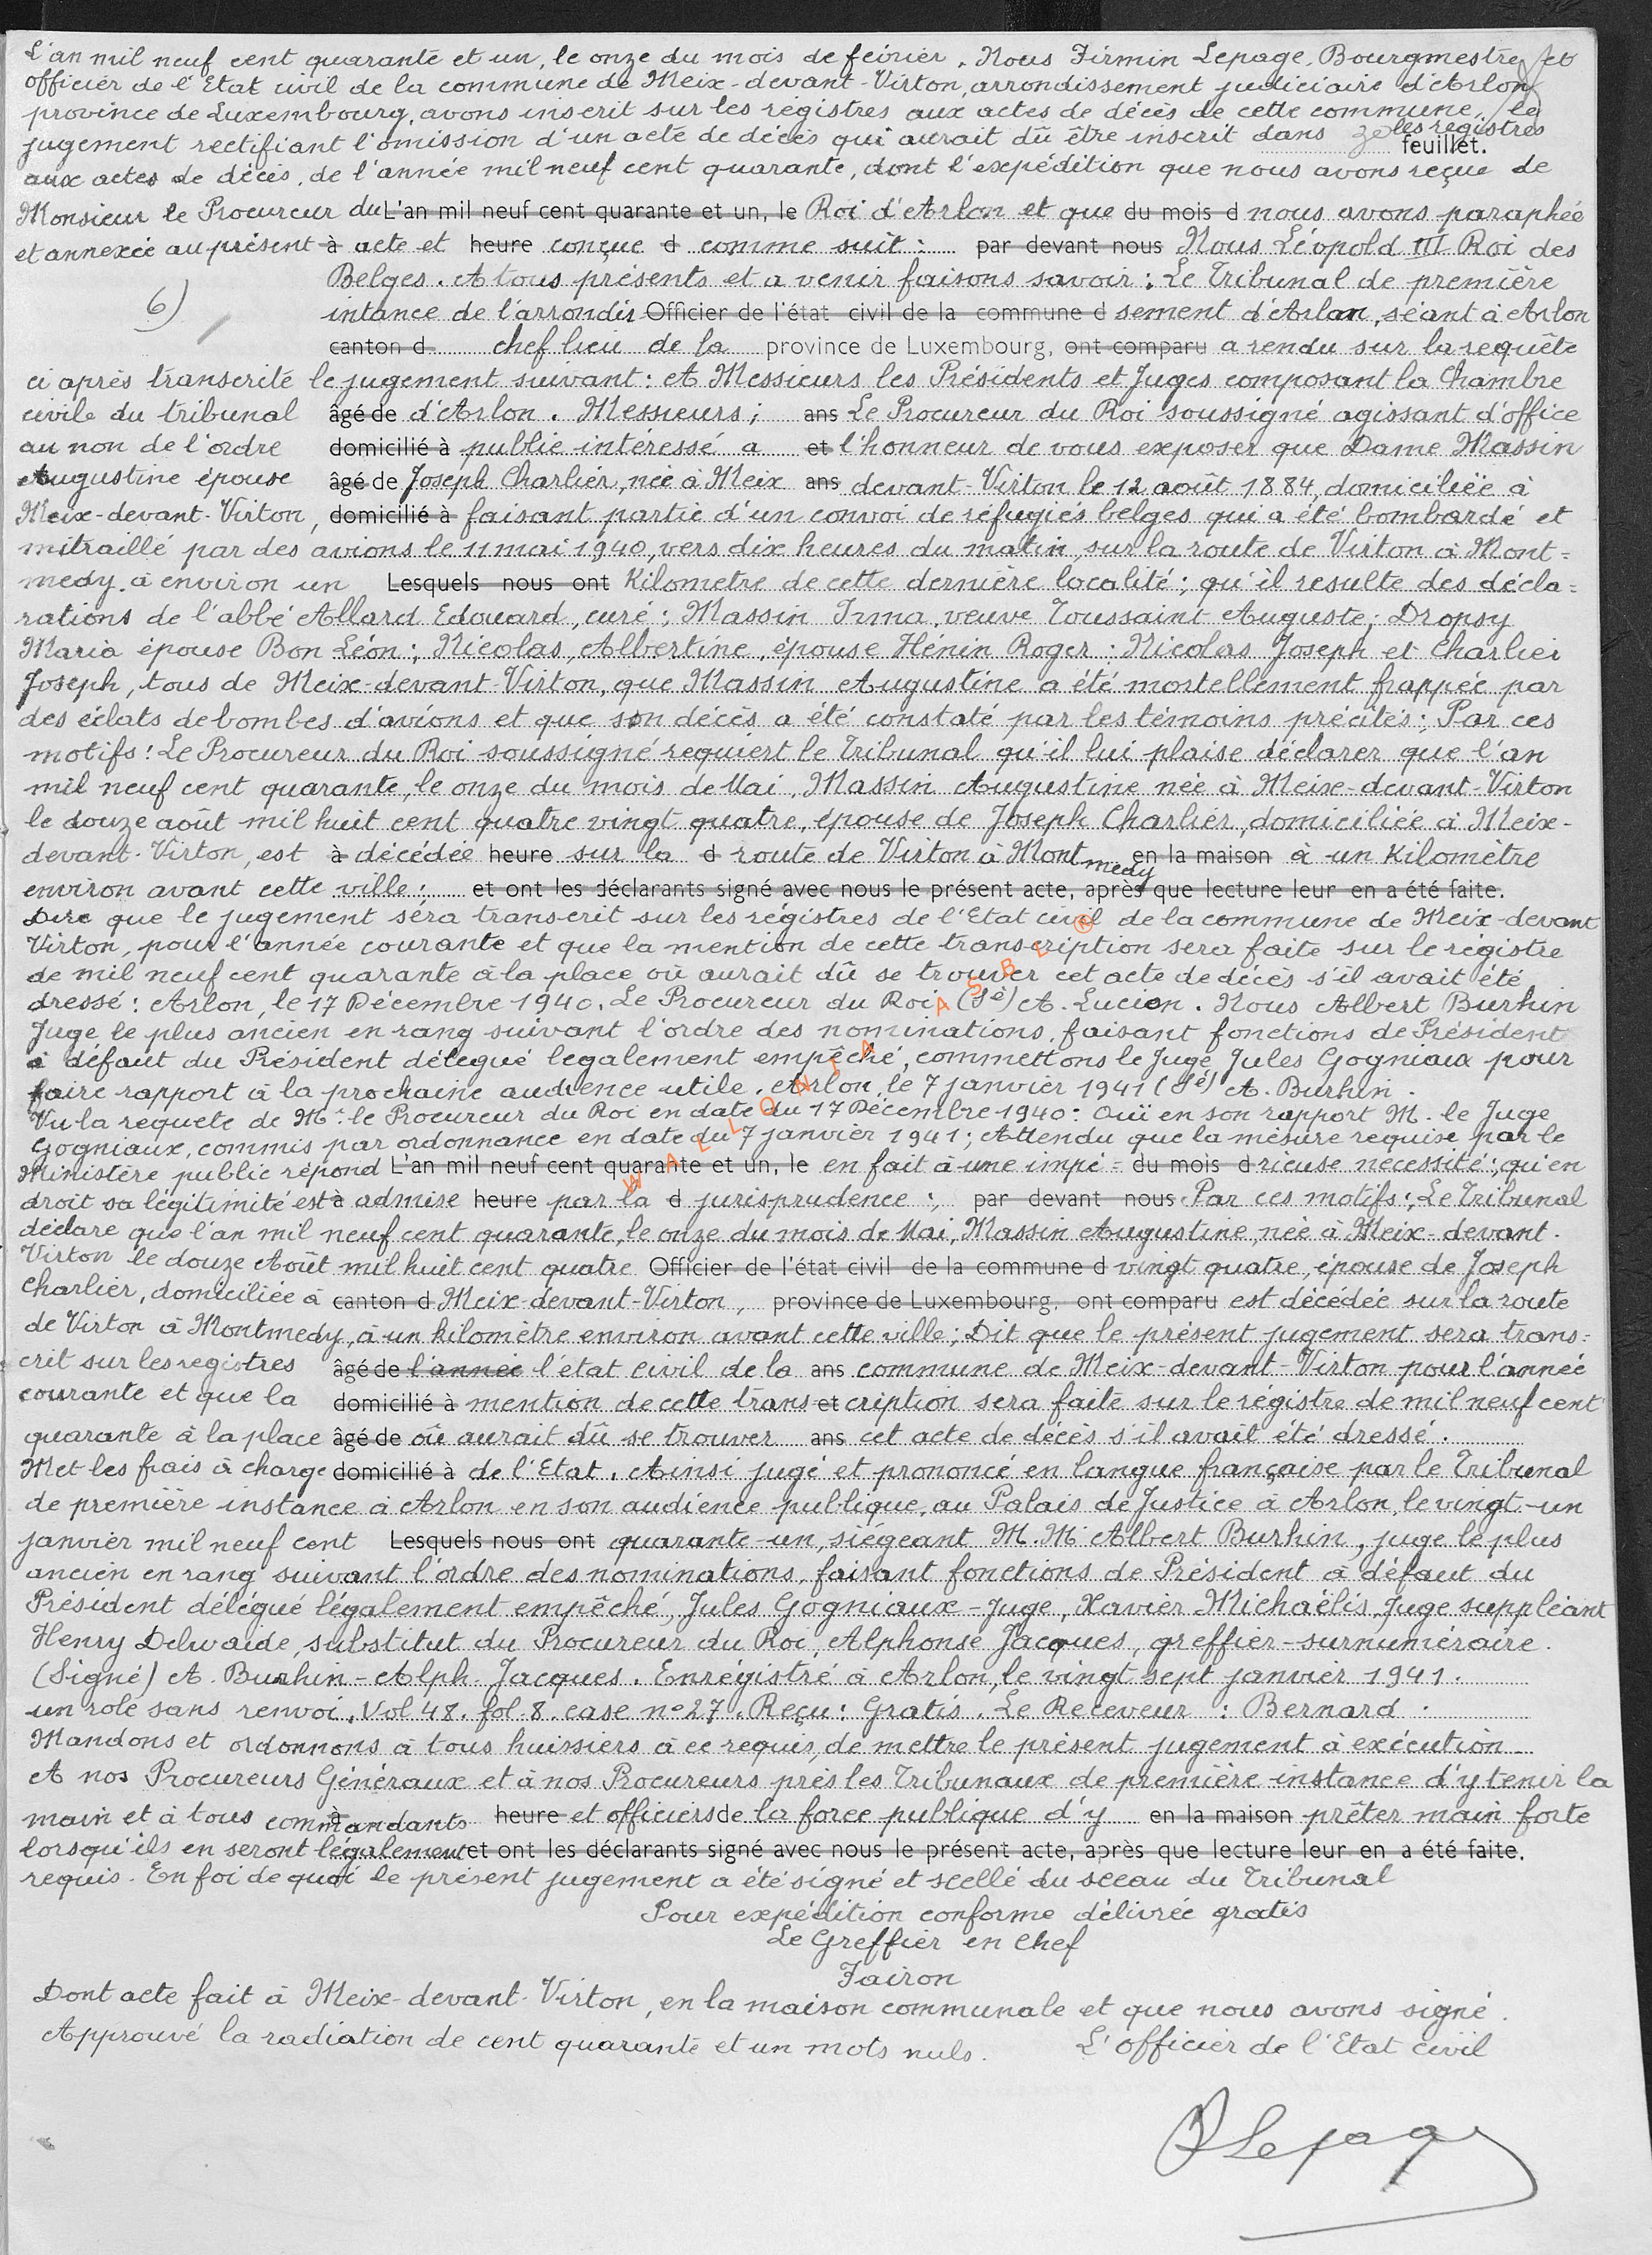 L'an mil neuf cent quarante et un, le onze du mois de février. Nous Firmin Lepage, Bourgmestre et
officier de l'Etat civil de la commune de Meix-devant-Virton, arrondissement judiciaire d'Arlon
province de Luxembourg, avons inscrit sur les régistres aux actes de décès de cette commune, le
jugement rectifiant l'omission d'un acte de décès qui aurait dû être inscrit dans les registres
feuillet.
aux actes de décès, de l'année mil neuf cent quarante, dont l'expédition que nous avons reçue de
Monsieur le Procureur du L'an mil neuf cent quarante et un, le Roi d'Arlon et que du mois d nous avons paraphée
et annexée au présent à acte et heure conçue d comme suit : par devant nous Nous Léopold III Roi des
Belges. A tous présents et a venir faisons savoir : Le Tribunal de première
6)
intance de l'arrondis Officier de l'état civil de la commune d sement d'Arlon, séant à Arlon
canton d chef lieu de la province de Luxembourg, ont comparu a rendu sur la requête
ci après transcrite le jugement suivant : A Messieurs les Présidents et Juges composant la Chambre
civile du tribunal âgé de d'Arlon. Messieurs ; ans Le Procureur du Roi soussigné agissant d'office
au non de l'ordre domicilié à public intéressé a et l'honneur de vous exposer que Dame Massin
Augustine épouse âgé de Joseph Charlier, née à Meix ans devant-Virton le 12 août 1884, domiciliée à
Meix-devant-Virton, domicilié à faisant partie d'un convoi de réfugiés belges qui a été bombardé et
mitraillé par des avions le 11 mai 1940, vers dix heures du matin, sur la route de Virton à Mont=
medy. à environ un Lesquels nous ont Kilometre de cette dernière localité ; qu'il resulte des décla=
rations de l'abbé Allard Edouard, curé ; Massin Irma, veuve Toussaint Auguste ; Dropsy
Maria épouse Bon Léon ; Nicolas, Albertine, épouse Hénin Roger ; Nicolas Joseph et Charlier
Joseph, tous de Meix-devant-Virton, que Massin Augustine a été mortellement frappée par
des éclats de bombes d'avions et que son décès a été constaté par les témoins précités ; Par ces
motifs ! Le Procureur du Roi soussigné requiert le Tribunal qu'il lui plaise déclarer que l'an
mil neuf cent quarante, le onze du mois de Mai, Massin Augustine née à Meix-devant-Virton
le douze août mil huit cent quatre vingt quatre, épouse de Joseph Charlier, domiciliée à Meix-
devant-Virton, est à décédée heure sur la d route de Virton à Montmedy en la maison à un Kilomètre
environ avant cette ville ; et ont les déclarants signé avec nous le présent acte, après que lecture leur en a été faite.
Dire que le jugement sera transcrit sur les régistres de l'Etat civil de la commune de Meix-devant
Virton, pour l'année courante et que la mention de cette transcription sera faite sur le régistre
de mil neuf cent quarante à la place où aurait dû se trouver cet acte de décès s'il avait été
dressé : Arlon, le 17 Décembre 1940. Le Procureur du Roi (Sé) A. Lucion. Nous Albert Burhin
Juge le plus ancien en rang suivant l'ordre des nominations, faisant fonctions de Président
à défaut du Président délégué legalement empêché, commettons le Juge Jules Gogniaux pour
faire rapport à la prochaine audience utile. Arlon, le 7 janvier 1941 (Sé) A. Burhin.
Vu la requete de Mr. le Procureur du Roi en date du 17 Décembre 1940 : Ouï en son rapport M. le Juge
Gogniaux, commis par ordonnance en date du 7 janvier 1941 ; Attendu que la mesure requise par le
Ministère public répond L'an mil neuf cent quarante et un, le en fait à une impé= du mois d rieuse nécessité ; qu'en
droit sa légitimité est à admise heure par la d jurisprudence ; par devant nous Par ces motifs ; Le Tribunal
déclare que l'an mil neuf cent quarante, le onze du mois de Mai, Massin Augustine, née à Meix-devant.
Virton le douze Août mil huit cent quatre Officier de l'état civil de la commune d vingt quatre, épouse de Joseph
Charlier, domiciliée à canton d Meix-devant-Virton, province de Luxembourg, ont comparu est décédée sur la route
de Virton à Montmedy, à un kilomètre environ avant cette ville ; Dit que le présent jugement sera trans=
crit sur les registres âgé de l'année l'état civil de la ans commune de Meix-devant-Virton pour l'année
courante et que la domicilié à mention de cette trans et cription sera faite sur le régistre de mil neuf cent
quarante à la place âgé de où aurait dû se trouver ans cet acte de décès s'il avait été dressé.
Met les frais à charge domicilié à de l'Etat. Ainsi jugé et prononcé en langue française par le Tribunal
de première instance à Arlon en son audience publique, au Palais de Justice à Arlon, le vingt-un
janvier mil neuf cent Lesquels nous ont quarante-un, siégeant M. M. Albert Burhin, juge le plus
ancien en rang suivant l'ordre des nominations, faisant fonctions de Président à défaut du
Président délégué légalement empêché, Jules Gogniaux-Juge, Xavier Michaëlis, Juge suppléant
Henry Delwaide, substitut du Procureur du Roi, Alphonse Jacques, greffier-surnuméraire.
(Signé) A. Burhin - Alph. Jacques. Enrégistré à Arlon, le vingt sept janvier 1941.
un role sans renvoi. Vol 48. fol. 8. case n° 27. Reçu : Gratis. Le Receveur : Bernard.
Mandons et ordonnons à tous huissiers à ce requis, de mettre le présent jugement à exécution
A nos Procureurs Généraux et à nos Procureurs près les Tribunaux de première instance d'y tenir la
main et à tous commandants à heure et officiers de la force publique d'y en la maison prêter main forte
lorsqu'ils en seront légalement et ont les déclarants signé avec nous le présent acte, après que lecture leur en a été faite.
requis. En foi de quoi le présent jugement a été signé et scellé du sceau du Tribunal
Pour expédition conforme délivrée gratis
Le Greffier en Chef
Fairon
Dont acte fait à Meix-devant-Virton, en la maison communale et que nous avons signé.
Approuvé la radiation de cent quarante et un mots nuls. L'officier de l'Etat civil
Lepage
WALLONIA ASBL ®